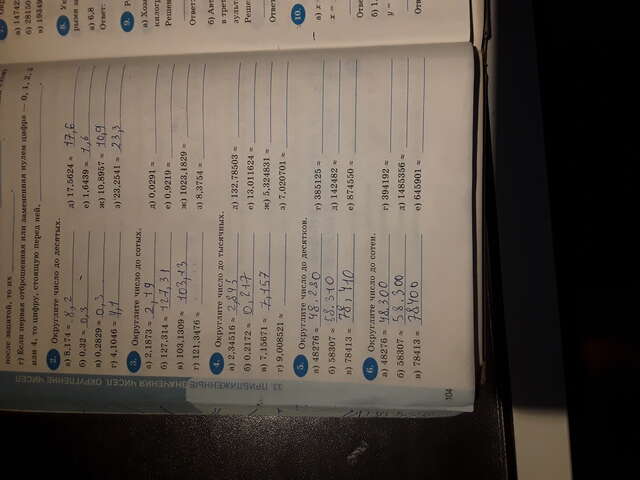 после запятой, то их
г) Если первая отброшенная или замененная нулем цифра — 0, 1, 2, 3
или 4, то цифру, стоящую перед ней,
2. Округлите число до десятых.
а) 8,174 ≈ 8,2 д) 17,5624 ≈ 17,6
б) 0,32 ≈ 0,3 е) 1,6439 ≈ 1,6
в) 0,2829 ≈ 0,3 ж) 10,8957 ≈ 10,9
г) 4,1046 ≈ 4,1 з) 23,2541 ≈ 23,3
3. Округлите число до сотых.
а) 2,1873 ≈ 2,19 д) 0,0291 ≈
б) 127,314 ≈ 127,31 е) 0,9219 ≈
в) 103,1309 ≈ 103,13 ж) 1023,1829 ≈
г) 121,3476 ≈ з) 8,3754 ≈
4. Округлите число до тысячных.
а) 2,34516 ≈ д) 132,78503 ≈
б) 0,2172 ≈ 0,217 е) 13,011624 ≈
в) 7,15671 ≈ 7,157 ж) 5,324831 ≈
г) 9,008521 ≈ з) 7,020701 ≈
5. Округлите число до десятков.
а) 48276 ≈ 48.280 г) 385125 ≈
б) 58307 ≈ 58.310 д) 142482 ≈
в) 78413 ≈ 78,410 е) 874550 ≈
6. Округлите число до сотен.
а) 48276 ≈ 48.300 г) 394192 ≈
б) 58307 ≈ 58.300 д) 1485356 ≈
в) 78413 ≈ 78400 е) 645901 ≈
104
33. ПРИБЛИЖЕННЫЕ ЗНАЧЕНИЯ ЧИСЕЛ. ОКРУГЛЕНИЕ ЧИСЕЛ
7.
а) 14742
б) 28150
в) 19349
8.
рыми за
а) 6,8
Ответ:
9.
а) Хозя
килогр
Решен
Ответ:
б) Авт
в трет
зульт
Реше
Ответ
10.
а) x
x =
Отве
б) 1.
y =
Отв